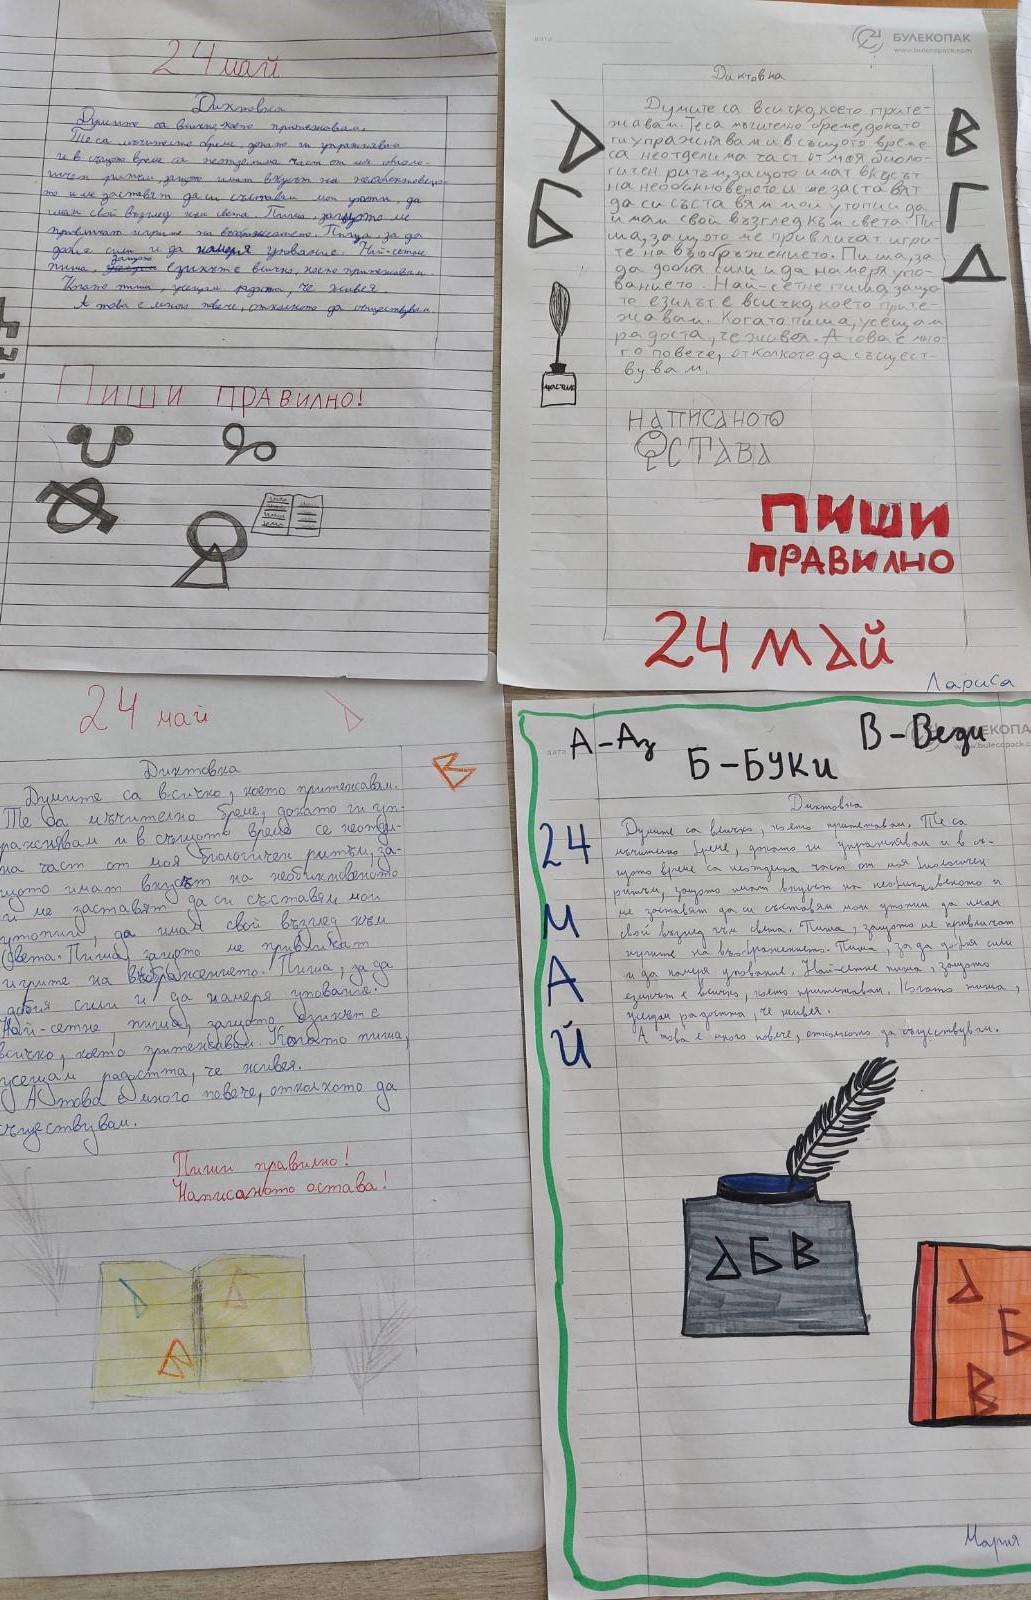 24 май
Диктовка
Думите са всичко, което притежавам.
Те са мъчително бреме, докато ги упражнявам
и в същото време са неотделима част от моя биоло-
гичен ритъм, защото имат вкусът на необикновено-
то и ме заставят да си съставям мои утопии, да
имам свой възглед към света. Пиша, защото ме
привличат игрите на въображението. Пиша, за да
добия сили и да намеря упование. Най-сетне
пиша, защото езикът е всичко, което притежавам.
Когато пиша, усещам радостта, че живея.
А това е много повече, отколкото да съществувам.
Пиши правилно!
БУЛЕКОПАК
www.bulecopack.com
ДАТА
Диктовка
Думите са всичко, което прите-
жавам. Те са мъчително бреме, докато
ги упражнявам и в същото време
са неотделима част от моя биоло-
гичен ритъм, защото имат вкусът
на необикновеното и ме заставят
да си съставям мои утопии да
имам свой възглед към света. Пи-
ша, защото ме привличат игри-
те на въображението. Пиша, за
да добия сили и да намеря упо-
ванието. Най-сетне пиша, защо-
то езикът е всичко, което прите-
жавам. Когато пиша, усещам
радоста, че живея. А това е мно-
го повече, отколкото да същест-
вувам.
Б
В
Г
Д
мастило
написаното
остава
пиши
правилно
24 май
Лариса
24 май
В
Диктовка
Думите са всичко, което притежавам.
Те да мъчително бреме, докато ги уп-
ражнявам и в същото време се неотдели-
на част от моя биологичен ритъм, за-
щото имат вкусът на необикновеното
и ме заставят да си съставям мои
утопии, да имам свой възглед към
света. Пиша, защото ме привличат
игрите на въображението. Пиша, за да
добия сили и да намеря упование.
Най-сетне, пиша, защото езикът е
всичко, което притежавам. Когато пиша,
усещам радостта, че живея.
А това е много повече, отколкото да
съществувам.
Пиши правилно!
Написаното остава!
В
А-Аз
Б-Буки
В-Веди
БУЛЕКОПА
www.bulecopack.com
ДАТА
Диктовка
24 МАЙ
Думите са всичко, което притежавам. Те са
мъчително бреме, докато ги упражнявам и в съ-
щото време са неотделима част от моя биологичен
ритъм, защото имат вкусът на необикновеното и
ме заставят да си съставям мои утопии да имам
свой възглед към света. Пиша, защото ме привличат
игрите на въображението. Пиша, за да добия сили
и да намеря упование. Най-сетне пиша, защото
езикът е всичко, което притежавам. Когато пиша,
усещам радостта, че живея.
А това е много повече, отколкото да съществувам.
А Б В
А
Б
В
Мария